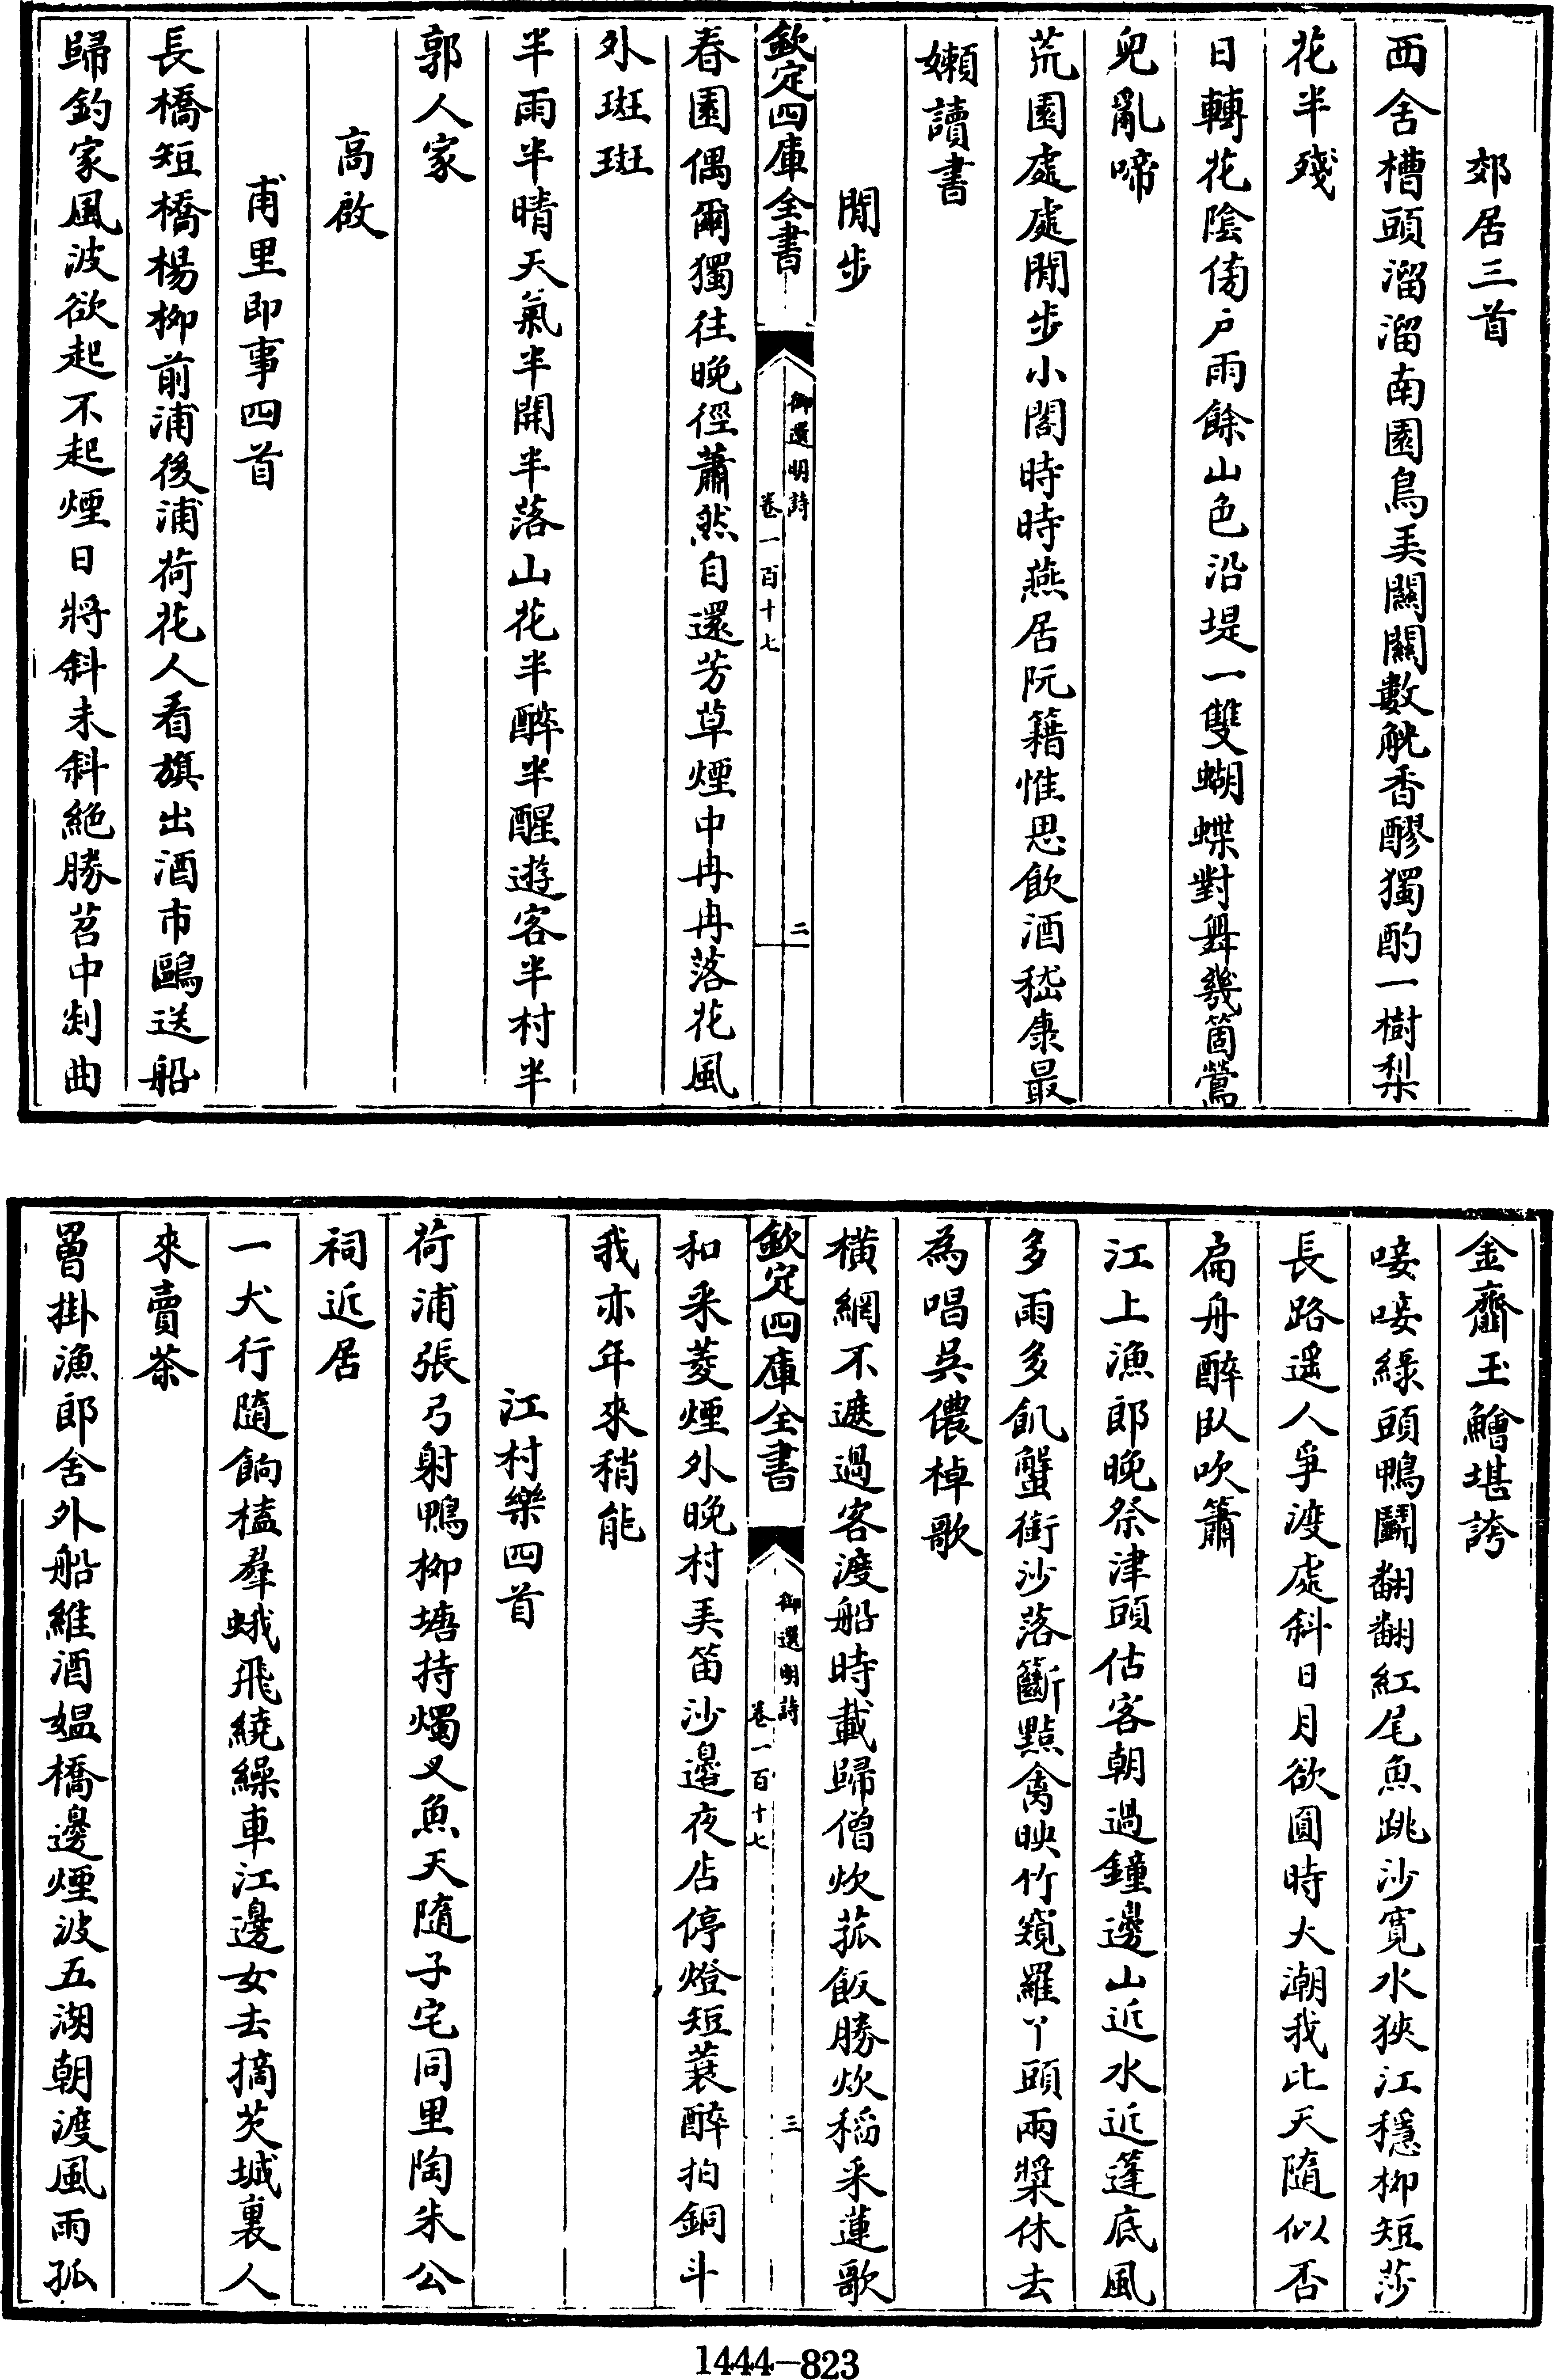 郊居三首
西舍槽頭溜溜南園鳥美關關數觥香醪獨酌一樹梨
花半殘
日轉花陰傍戶雨餘山色沿堤一雙蝴蝶對舞幾箇鶯
兒亂啼
荒園處處閒步小閣時時燕居阮籍惟思飲酒嵇康最
嬾讀書
閒步
欽定四庫全書
御選明詩
卷一百十七
二
春園偶爾獨往晚徑蕭然自還芳草煙中冉冉落花風
外斑斑
半雨半晴天氣半開半落山花半醉半醒遊客半村半
郭人家
高啟
甫里即事四首
長橋短橋楊柳前浦後浦荷花人看旗出酒市鷗送船
歸釣家風波欲起不起煙日將斜未斜絶勝苕中剡曲
金虀玉鱠堪誇
唼唼綠頭鴨鬭翻翻紅尾魚跳沙寛水狹江穩柳短莎
長路遥人爭渡處斜日月欲圓時大潮我比天隨似否
扁舟醉臥吹簫
江上漁郎晚祭津頭估客朝過鐘邊山近水近篷底風
多雨多飢蟹銜沙落籪點禽映竹窺羅丫頭兩槳休去
為唱吳儂棹歌
橫網不遮過客渡船時載歸僧炊菰飯勝炊稻采蓮歌
欽定四庫全書
御選明詩
卷一百十七
三
和采菱煙外晚村美笛沙邊夜店停燈短蓑醉拍銅斗
我亦年來稍能
江村樂四首
荷浦張弓射鴨柳塘持燭叉魚天隨子宅同里陶朱公
祠近居
一犬行隨餉榼羣蛾飛繞繰車江邊女去摘茨城裏人
來賣茶
罾掛漁郎舍外船維酒媪橋邊煙波五湖朝渡風雨孤
1444—823